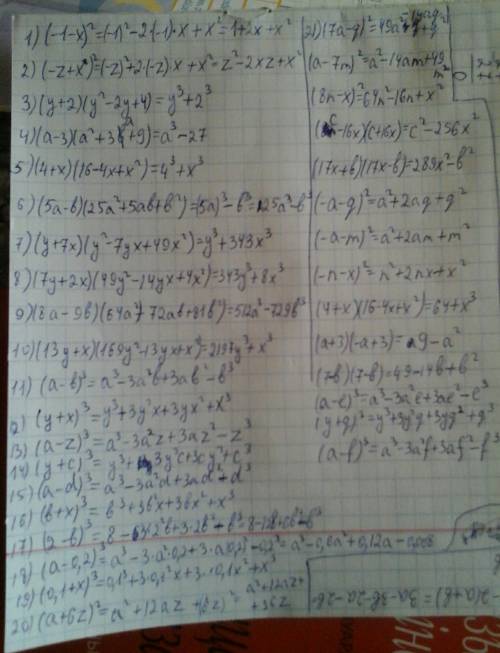 1) (-1-x)²=(-1)²-2·(-1)·x+x²=1+2x+x²
2) (-z+x)²=(-z)²+2·(-z)·x+x²=z²-2xz+x²
3) (y+2)(y²-2y+4)=y³+2³
4) (a-3)(a²+3a+9)=a³-27
5) (4+x)(16-4x+x²)=4³+x³
6) (5a-b)(25a²+5ab+b²)=(5a)³-b³=125a³-b³
7) (y+7x)(y²-7yx+49x²)=y³+343x³
8) (7y+2x)(49y²-14yx+4x²)=343y³+8x³
9) (8a-9b)(64a²+72ab+81b²)=512a³-729b³
10) (13y+x)(169y²-13yx+x²)=2197y³+x³
11) (a-b)³=a³-3a²b+3ab²-b³
12) (y+x)³=y³+3y²x+3yx²+x³
13) (a-z)³=a³-3a²z+3az²-z³
14) (y+c)³=y³+3y²c+3cy²+c³
15) (a-d)³=a³-3a²d+3ad²+d³
16) (b+x)³=b³+3b²x+3bx²+x³
17) (2-b)³=8-3·2²b+3·2b²-b³=8-12b+6b²-b³
18) (a-0,2)³=a³-3·a²·0,2+3·a(0,2)²-0,2³=a³-0,6a²+0,12a-0,008
19) (0,1+x)³=0,1³+3·0,1²x+3·0,1x²+x³
20) (a+6z)²=a²+12az+(6z)² a²+12az+
+36z
21) (7a-g)²=49a²-14ag+g²
(a-7m)²=a²-14am+49
m²
(8n-x)²=64n²-16n+x²
(c-16x)(c+16x)=c²-256x²
(17x+b)(17x-b)=289x²-b²
(-a-g)²=a²+2ag+g²
(-a-m)²=a²+2am+m²
(-n-x)²=n²+2nx+x²
(4+x)(16-4x+x²)=64+x³
(a+3)(-a+3)=9-a²
(7-b)(7-b)=49-14b+b²
(a-c)³=a³-3a²c+3ac²-c³
(y+g)³=y³+3y²g+3yg²+g³
(a-f)³=a³-3a²f+3af²-f³